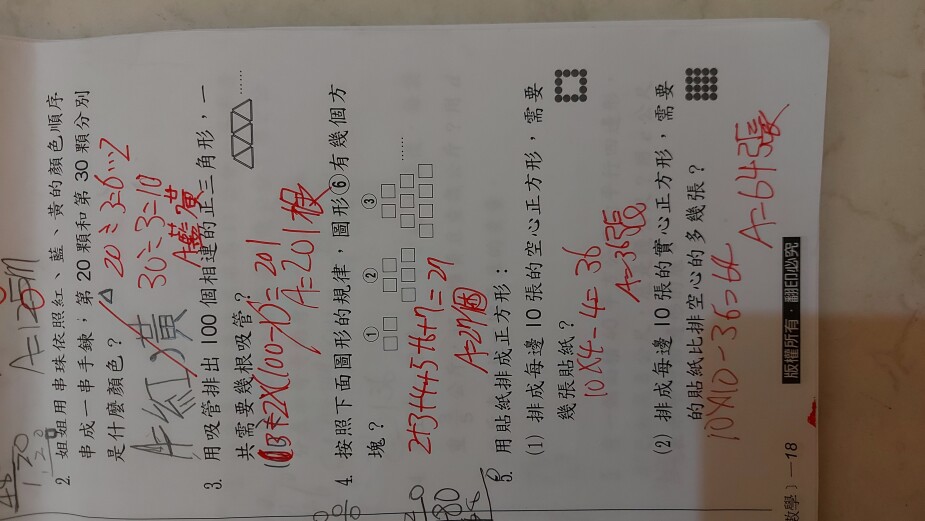 2. 姐姐用串珠依照紅、藍、黃的顏色順序
串成一串手鍊；第 20 顆和第 30 顆分別
是什麼顏色？
20÷3=6…2
30÷3=10
A=紅、黃
A藍、黃
3. 用吸管排出 100 個相連的正三角形，一
共需要幾根吸管？ ……
A=201根
4. 按照下面圖形的規律，圖形⑥有幾個方
塊？
① ② ③ ……
2+3+4+5+6+7=27
A=27個
5. 用貼紙排成正方形：
(1) 排成每邊 10 張的空心正方形，需要
幾張貼紙？
10X4-4=36
A=36張
(2) 排成每邊 10 張的實心正方形，需要
的貼紙比排空心的多幾張？
10X10-36=64
A=64張
版權所有．翻印必究
數學〕—18